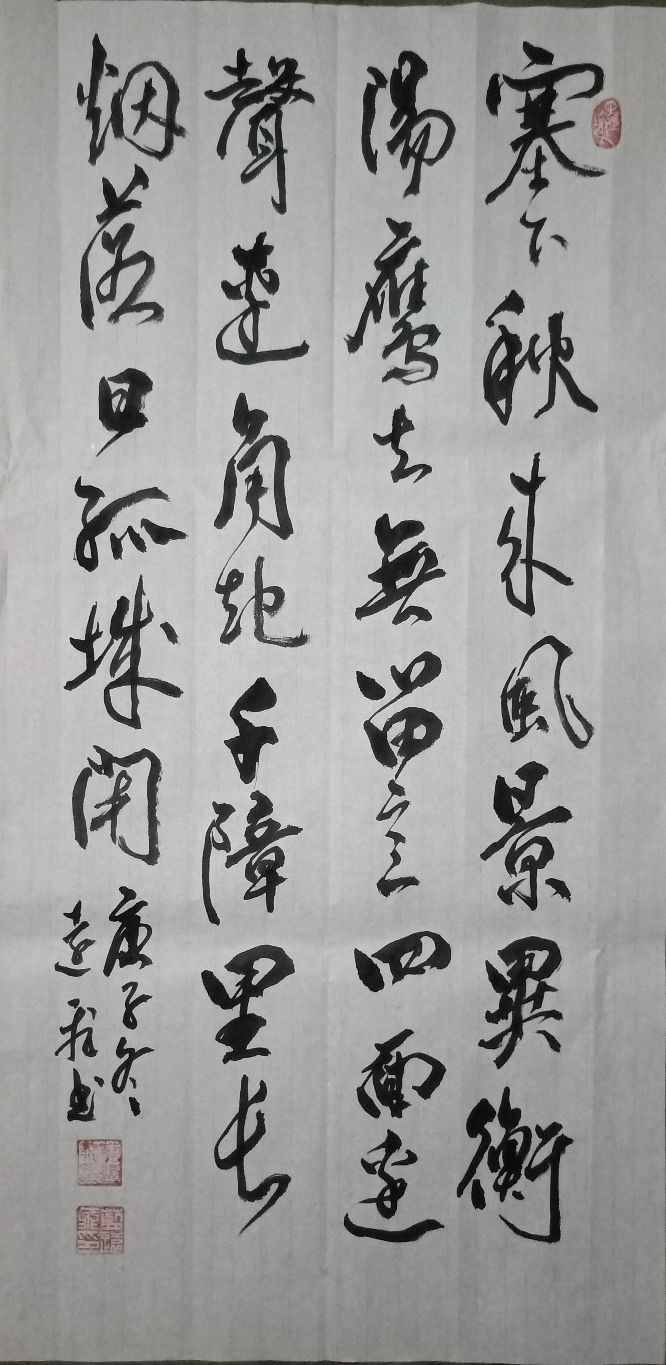 塞下秋来風景異衡
陽鷹去無留意四面邊
聲連角起千障里長
烟落日孤城閉
庚子冬
书